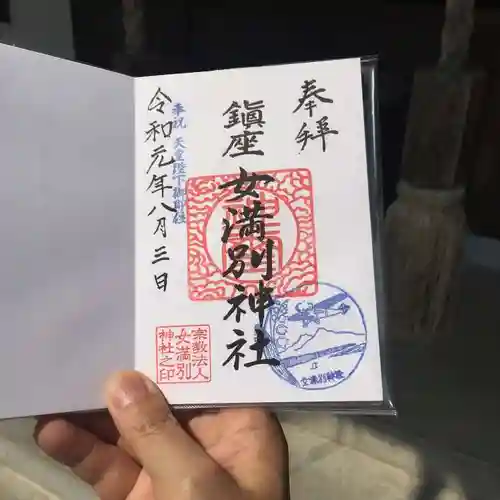 奉拝
鎮座
女満別神社
奉祝 天皇陛下御即位
令和元年八月三日
宗教法人
女満別
神社之印